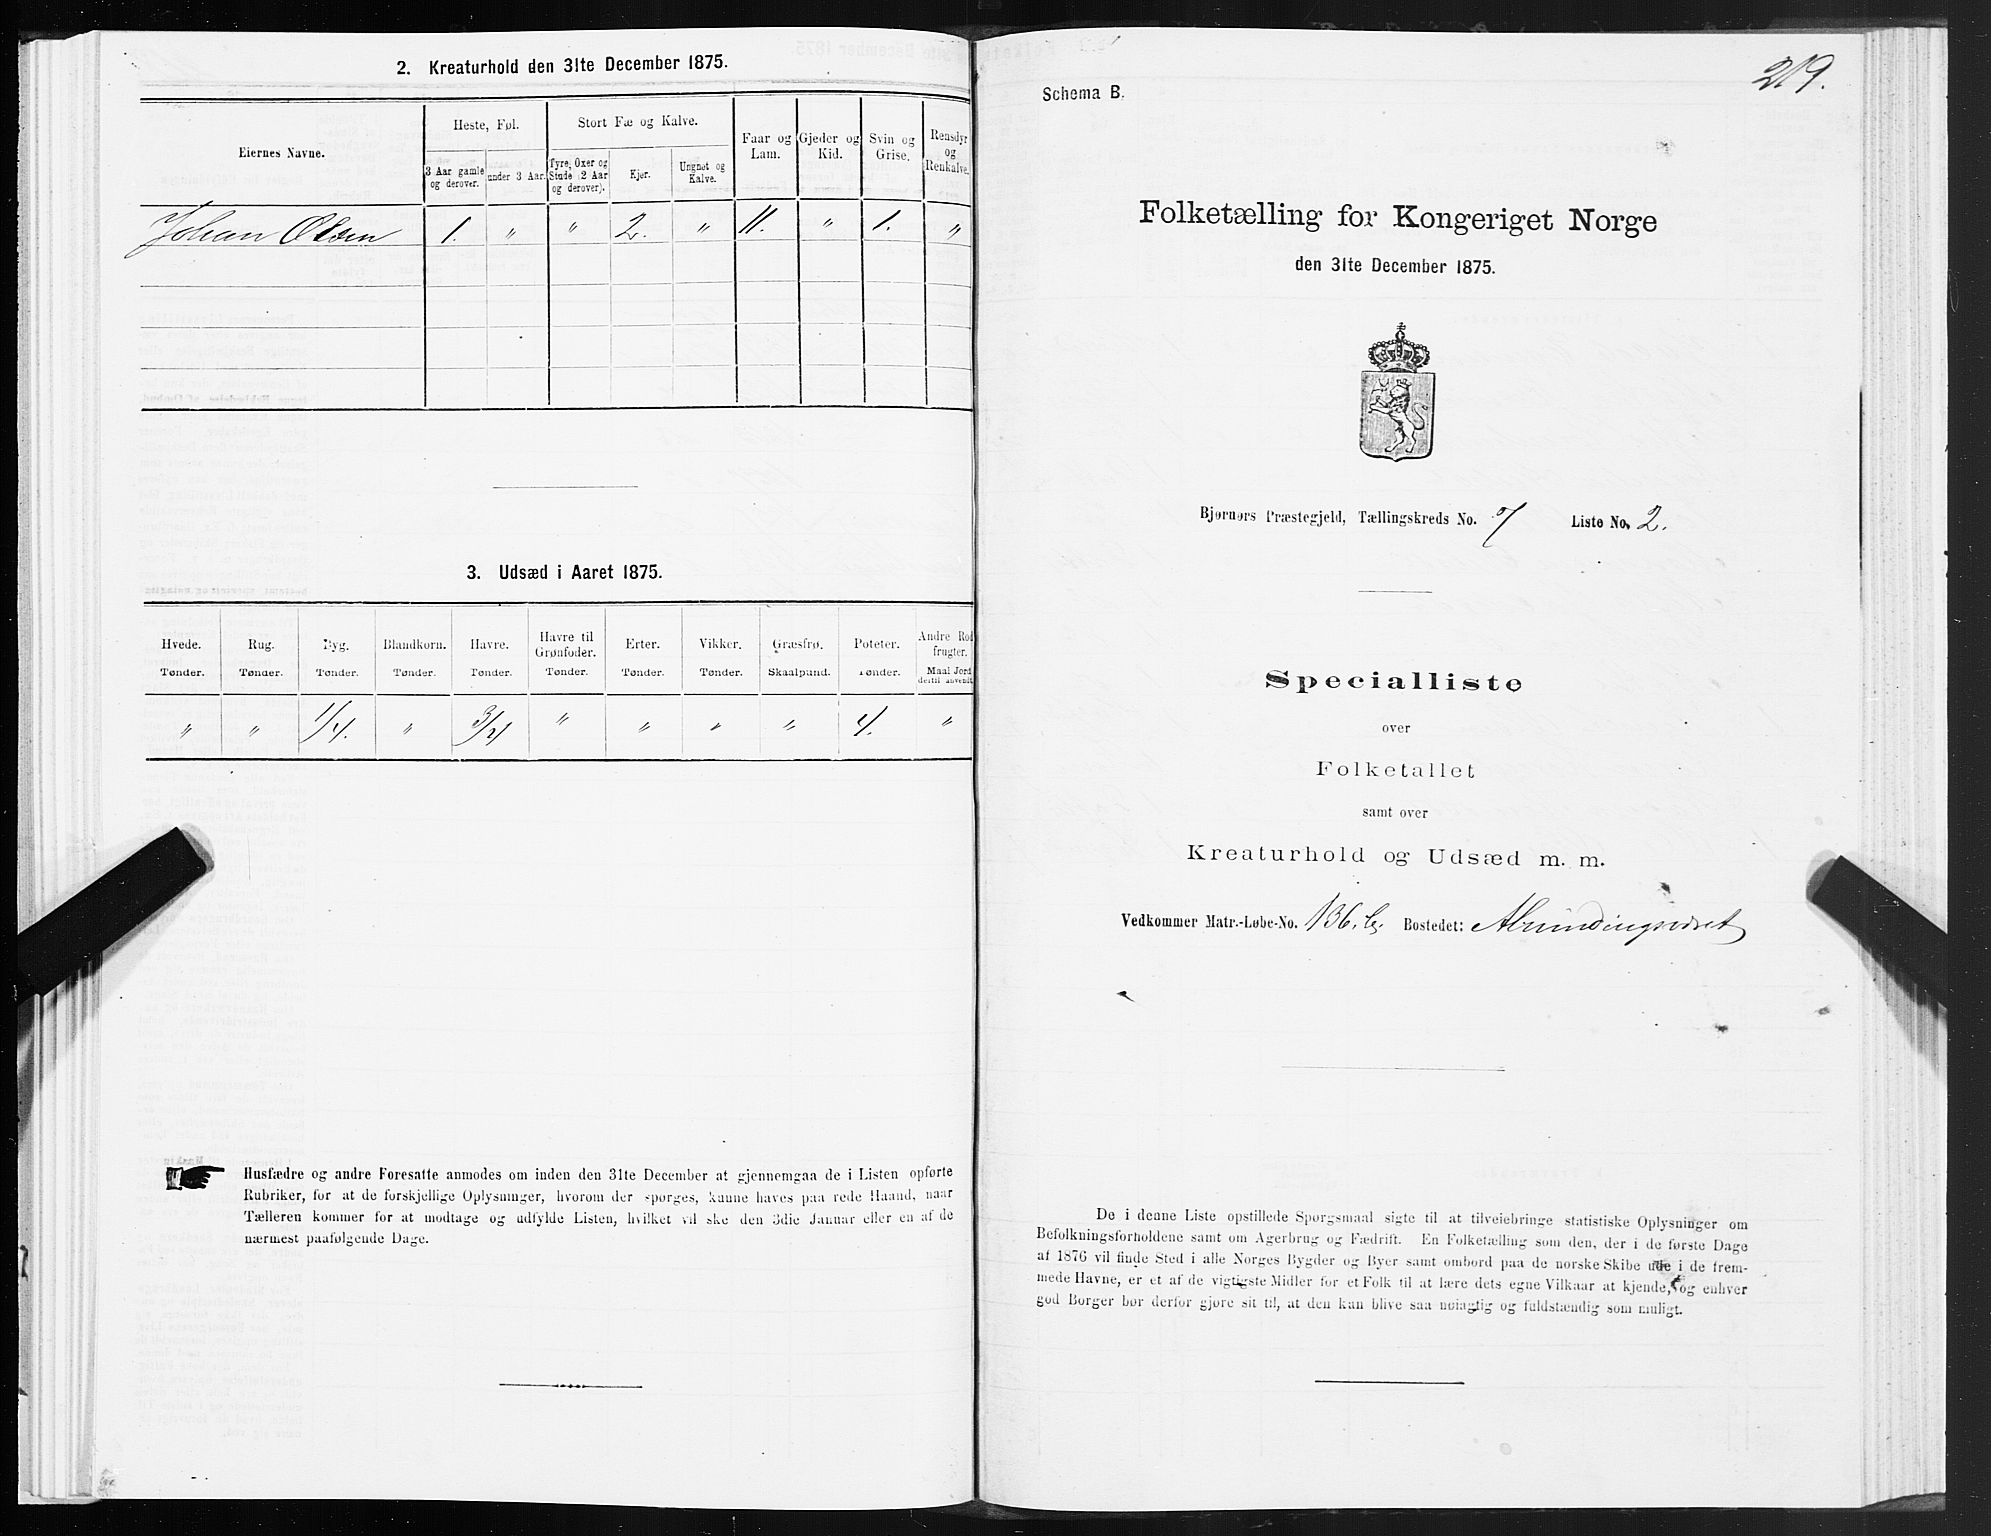 2. Kreaturhold den 31te December 1875.
Eiernes Navne.
Heste, Føl.
Stort Fæ og Kalve.
Faar og Lam.
Gjeder og Kid.
Svin og Grise.
Rensdyr og Renkalve.
3 Aar gamle og derover.
under 3 Aar.
Tyre, Oxer og Stude (2 Aar og derover).
Kjør.
Ungnøt og Kalve.
Johan Olsen 1. " " 2. " 11. " 1. "
3. Udsæd i Aaret 1875.
Hvede. Rug. Byg. Blandkorn. Havre. Havre til Grønfoder. Erter. Vikker. Græsfrø. Poteter. Andre Rodfrugter.
Tønder. Tønder. Tønder. Tønder. Tønder. Tønder. Tønder. Tønder. Skaalpund. Tønder. Maal Jord dertil anvendt.
" " 1/4. " 3/4 " " " " 4. "
Husfædre og andre Foresatte anmodes om inden den 31te December at gjennemgaa de i Listen opførte
Rubriker, for at de forskjellige Oplysninger, hvorom der spørges, kunne haves paa rede Haand, naar
Tælleren kommer for at modtage og udfylde Listen, hvilket vil ske den 3die Januar eller en af de
nærmest paafølgende Dage.
219.
Schema B.
Folketælling for Kongeriget Norge
den 31te December 1875.
Bjørnørs Præstegjeld, Tællingskreds No. 7 Liste No. 2.
Specialliste
over
Folketallet
samt over
Kreaturhold og Udsæd m. m.
Vedkommer Matr.-Løbe-No. 136, b. Bostedet:
De i denne Liste opstillede Spørgsmaal sigte til at tilveiebringe statistiske Oplysninger om
Befolkningsforholdene samt om Agerbrug og Fædrift. En Folketælling som den, der i de første Dage
af 1876 vil finde Sted i alle Norges Bygder og Byer samt ombord paa de norske Skibe ude i de frem-
mede Havne, er et af de vigtigste Midler for et Folk til at lære dets egne Vilkaar at kjende, og enhver
god Borger bør derfor gjøre sit til, at den kan blive saa nøiagtig og fuldstændig som muligt.